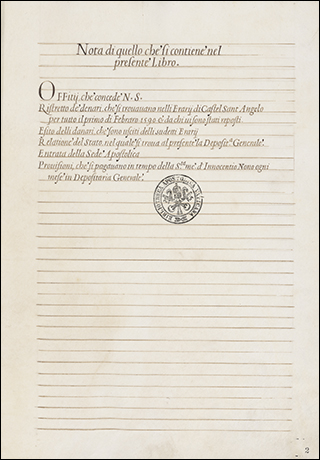 Nota di quello che si contiene nel
presente Libro.
OFFitij, che concede N. S.
Ristretto de denari, che si trouauano nelli Erarij di Castel Sant Angelo
per tutto il primo di Febraro 1590 & da chi ui sono stati reposti
Esito delli danari, che sono usciti delli sudetti Erarij
Relatione del Stato, nel quale si troua al presente la Deposite. Generale.
Entrata della Sede Apostolica
Prouisioni, che si pagauano in tempo della S.ta me. d'Innocentio Nono ogni
mese in Depositaria Generale.
2